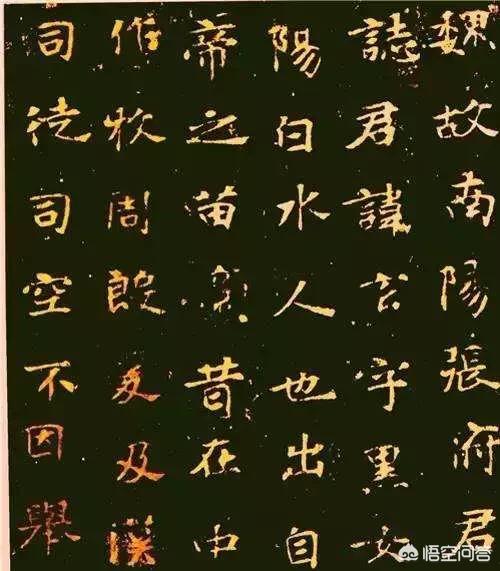 魏故南陽張府君
誌君諱玄字黑女
陽白水人也出自
帝之苗裔昔在中
作牧周殷爰及漢
司徒司空不因舉
悟空问答